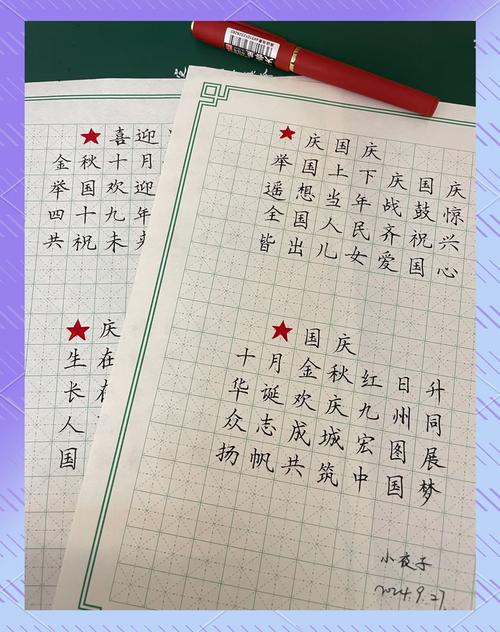 喜迎
金秋十月
举国欢迎
四十九年
共祝未
庆
生在
长在
人
国
庆国庆
举国上下庆国庆
遥想当年战鼓惊
全国人民齐祝兴
皆出儿女爱国心
国庆
十月金秋红日升
华诞欢庆九州同
众志成城宏图展
扬帆共筑中国梦
小夜子
2024.9.27